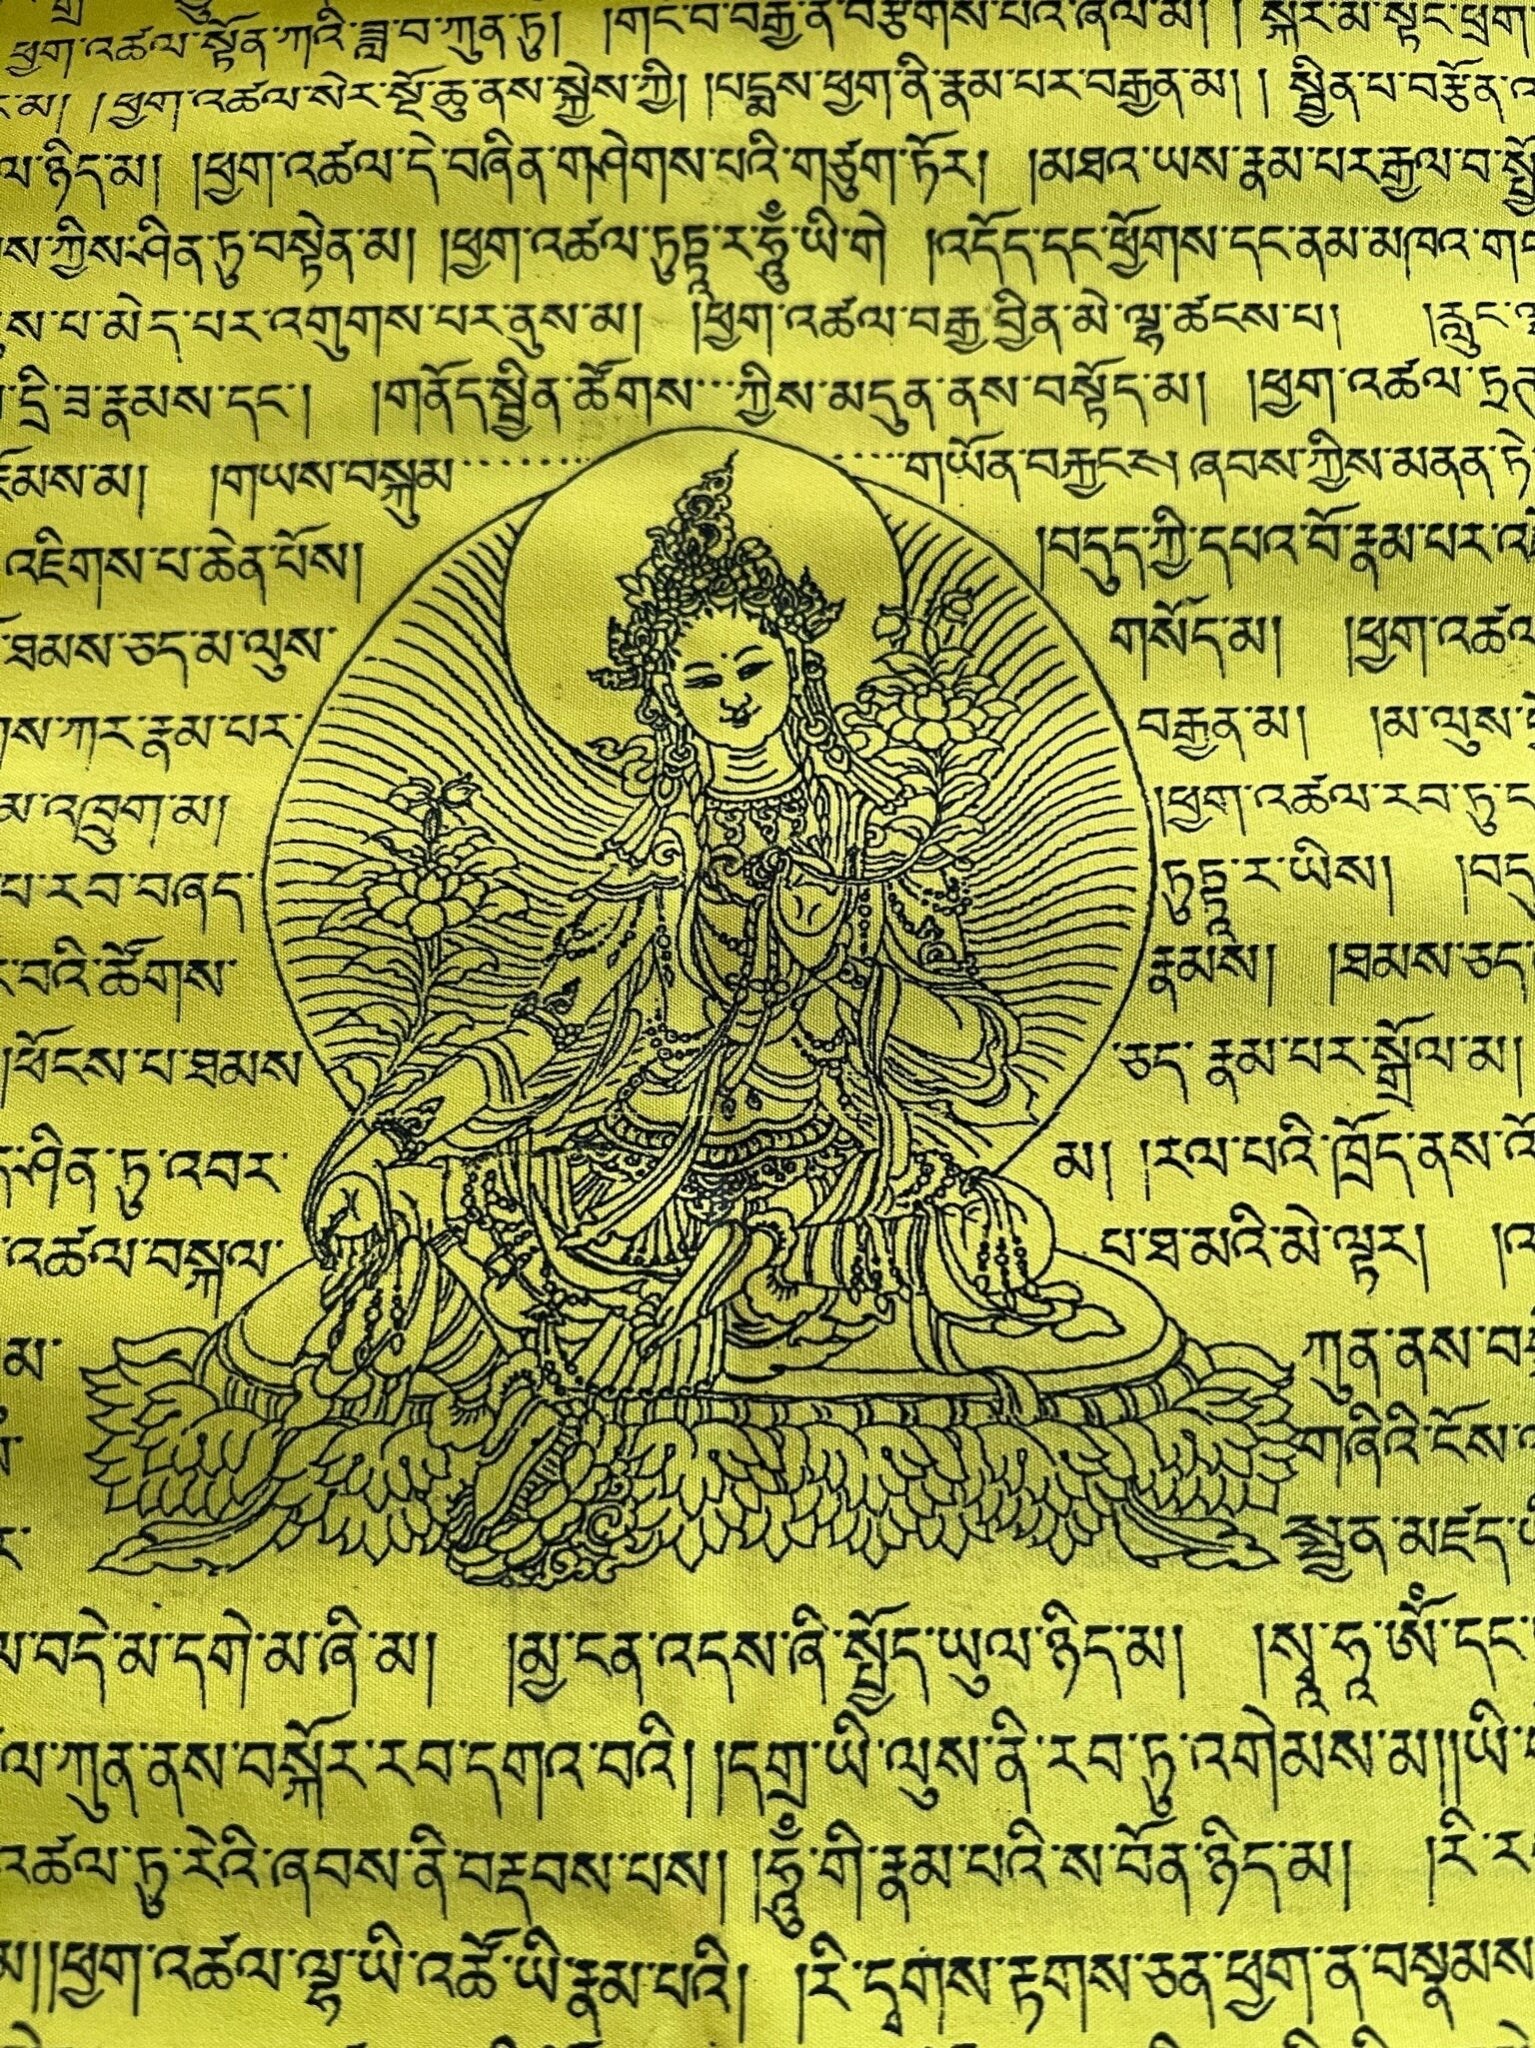 ཕྱག་འཚལ་སྟོན་ཀའི་ཟླ་བ་ཀུན་ཏུ། །གང་བ་བརྒྱ་ན་བརྩེགས་པའི་ཞལ་མ། །སྐར་མ་སྟང་ཕྲག
མ། །ཕྱག་འཚལ་སེར་སྔོ་ཆུ་ནས་སྐྱེས་ཀྱི། །པདྨས་ཕྱག་ནི་རྣམ་པར་བརྒྱན་མ། །སྦྱིན་པ་བརྩོན་འ
ལ་ཉིད་མ། །ཕྱག་འཚལ་དེ་བཞིན་གཤེགས་པའི་གཙུག་ཏོར། །མཐའ་ཡས་རྣམ་པར་རྒྱལ་བ་སྤྱོ
ས་ཀྱིས་ཤིན་ཏུ་བསྟེན་མ། །ཕྱག་འཚལ་ཏུཏྟཱ་ར་ཧཱུྃ་ཡི་གེ །འདོད་དང་ཕྱོགས་དང་ནམ་མཁའ་ག
ས་པ་མེད་པར་འགུགས་པར་ནུས་མ། །ཕྱག་འཚལ་བརྒྱ་བྱིན་མེ་ལྷ་ཚངས་པ། །རླུང་ལ
དྲི་ཟ་རྣམས་དང་། །གནོད་སྦྱིན་ཚོགས་ཀྱིས་མདུན་ནས་བསྟོད་མ། །ཕྱག་འཚལ་ཏྲཊ
ཇོམས་མ། །གཡས་བསྐུམ གཡོན་བརྐྱངས། ཞབས་ཀྱིས་མནན་ཏེ
འཇིགས་པ་ཆེན་པོས། །བདུད་ཀྱི་དཔའ་བོ་རྣམ་པར་འཇ
ཐམས་ཅད་མ་ལུས་ གསོད་མ། །ཕྱག་འཚལ
ས་ཀར་རྣམ་པར་ བརྒྱན་མ། །མ་ལུས་
མ་འཁྲུག་མ། །ཕྱག་འཚལ་རབ་ཏུ་ད
པ་རབ་བཞད་ ཏུཏྟཱ་ར་ཡིས། །བད
བའི་ཚོགས་ རྣམས། །ཐམས་ཅད
།ཕོངས་པ་ཐམས ཅད་རྣམ་པར་སྒྲོལ་མ།
ཤིན་ཏུ་འབར་ མ། །རལ་པའི་ཁྲོད་ནས་འོ
འཚལ་བསྐལ་ པ་ཐ་མའི་མེ་ལྟར། །འ
མ་ ཀུན་ནས་བ
གཞིའི་ངོས་ལ
སྨྱན་མཛད་ཡ
བདེ་མ་དགེ་མ་ཞི་མ། །མྱ་ངན་འདས་ཞི་སྤྱོད་ཡུལ་ཉིད་མ། །སྭཱ་ཧཱ་ཨོཾ་དང་
ལ་ཀུན་ནས་བསྐོར་རབ་དགའ་བའི། །དགྲ་ཡི་ལུས་ནི་རབ་ཏུ་འགེམས་མ།།ཡི་
འཚལ་ཏུ་རེའི་ཞབས་ནི་བརྡབས་པས། །ཧཱུྃ་གི་རྣམ་པའི་ས་བོན་ཉིད་མ། །རི་ར
མ།།ཕྱག་འཚལ་ལྷ་ཡི་འཚོ་ཡི་རྣམ་པའི། །རི་དྭགས་རྟགས་ཅན་ཕྱག་ན་བསྣམས